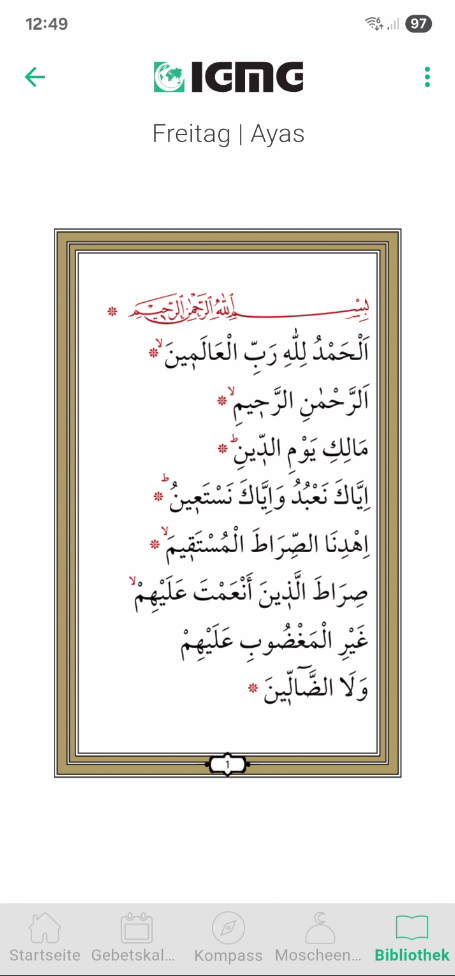 12:49
97
IGMG
Freitag | Ayas
بِسْمِ اللّٰهِ الرَّحْمٰنِ الرَّحِيمِ
اَلْحَمْدُ لِلّٰهِ رَبِّ الْعَالَمِينَۙ
اَلرَّحْمٰنِ الرَّحِيمِۙ
مَالِكِ يَوْمِ الدِّينِۜ
اِيَّاكَ نَعْبُدُ وَاِيَّاكَ نَسْتَعِينُۜ
اِهْدِنَا الصِّرَاطَ الْمُسْتَقِيمَۙ
صِرَاطَ الَّذِينَ أَنْعَمْتَ عَلَيْهِمْۙ
غَيْرِ الْمَغْضُوبِ عَلَيْهِمْ
وَلَا الضَّٓالِّينَ
1
Startseite Gebetskal... Kompass Moscheen... Bibliothek